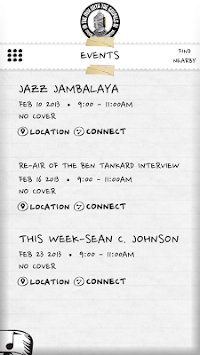 EVENTS
FIND
NEARBY
JAZZ JAMBALAYA
FEB 10 2013 • 9:00 - 11:00AM
NO COVER
LOCATION CONNECT
RE-AIR OF THE BEN TANKARD INTERVIEW
FEB 16 2013 • 9:00 - 11:00AM
NO COVER
LOCATION CONNECT
THIS WEEK-SEAN C. JOHNSON
FEB 23 2013 • 9:00 - 11:00AM
NO COVER
LOCATION CONNECT